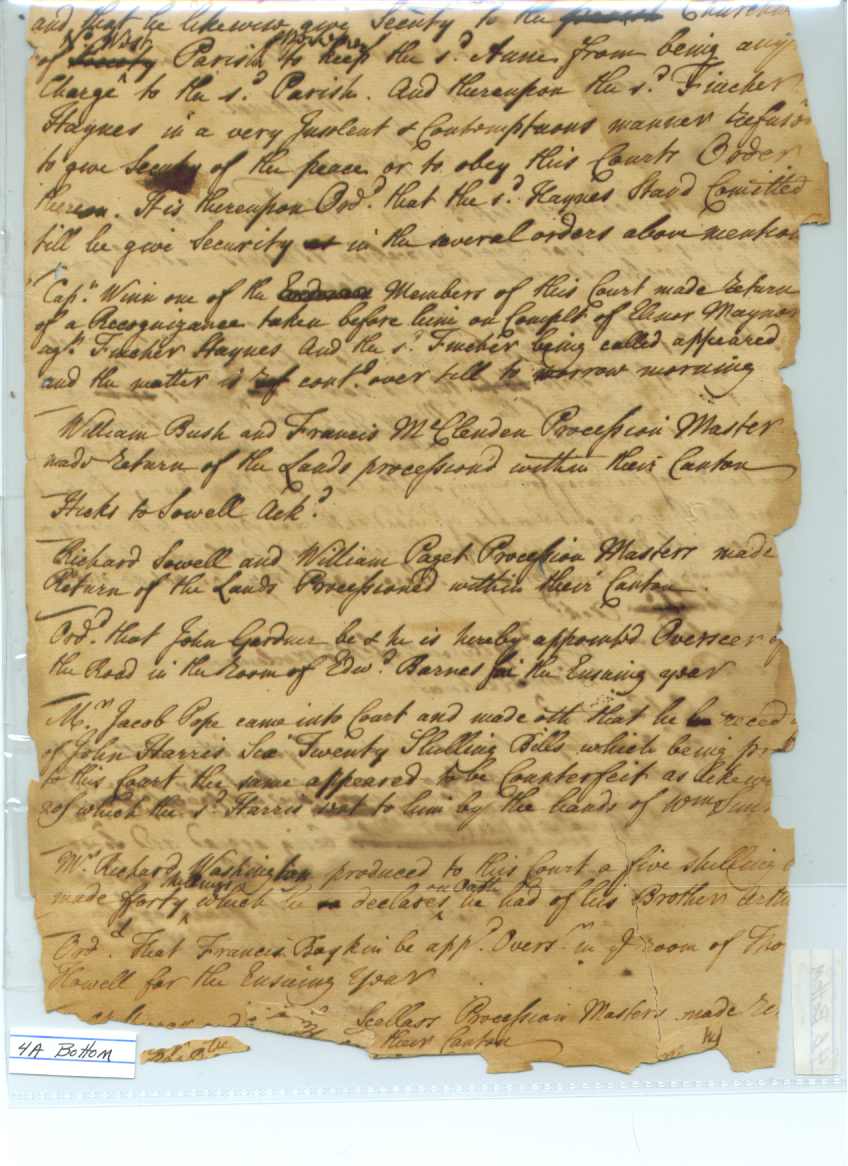 and that he likewise give Secuty to the parish Church
of the West Parish to keep the s.d Anne from being any
Charge to the s.d Parish. And thereupon the s.d Fincher
Haynes in a very Insolent & Contemptuous manner refus
to give Secuty of the peace or to obey this Courts Order
therein. It is thereupon Ord.d that the s.d Haynes Stand Comitted
till he give Security as in the several orders above mention
Cap.n Winn one of the Members of this Court made return
of a Recognizance taken before him on Complt of Elinor Maynor
ag.t Fincher Haynes And the s.d Fincher being called appeared
and the matter is ref cont.d over till to morrow morning
William Bush and Francis McClenden Procession Master
made return of the Lands processiond within their Canton
Hicks to Sowell Ack.d
Richard Sowell and William Paget Procession Masters made
Return of the Lands Processioned within their Canton.
Ord.d that John Gardner be & he is hereby appointd Overseer of
the Road in the Room of Edw.d Barnes for the Ensuing year
M.r Jacob Pope came into Court and made oth that he reced
of John Harris Twenty Shilling Bills which being
to this Court the same appeared to be Counterfeit as likewi
of which the s.d Harris to him by the hands of Wm
M.r Richard Washington produced to this Court a five shilling
made fforty shillings which he declares on Oath he had of his Brother Arthu
Ord.d That Francis Boykin be app.d Overs.r in y.e room of Tho
Howell for the Ensuing Year
Procession Masters made Re
their Canton
4A Bottom